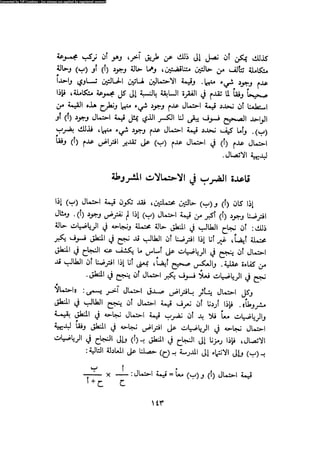 Converted by Tiff Combine - (no stamps are applied by registered version)
كذلك يمكن أن نصل إلى ذلك عن طريق آخر، وهو أن نركب مجموعة
متكاملة تتألف من حالتين متنافيتين، هما حالة وجود (أ) أو (ب) وحالة
عدم وجود شيء منهما. وقيمة احتمال هاتين الحالتين تساوي واحداً
صحيحاً وفقاً لما تقدم في الفقرة السابقة بالنسبة إلى كل مجموعة متكاملة، فإذا
استطعنا أن نحدد قيمة احتمال عدم وجود شيء منهما وطرحنا هذه القيمة من
الواحد الصحيح فسوف يبقى لنا الكسر الذي يمثل قيمة احتمال وجود (أ) أو
(ب). وأما كيف نحدد قيمة احتمال عدم وجود شيء منهما، فذلك بضرب
قيمة احتمال عدم (أ) في احتمال عدم (ب) على تقدير افتراض عدم (أ) وفقاً
لبديهية الاتصال.
قاعدة الضرب في الاحتمالات المشروطة
إذا كان (أ) و(ب) حالتين محتملتين، فقد يكون قيمة احتمال (ب) إذا
افترضنا وجود (أ) أكبر من قيمة احتمال (ب) إذا لم نفترض وجود (أ). ومثال
ذلك: أن نجاح الطالب في المنطق حالة محتملة ونجاحه في الرياضيات حالة
محتملة أيضاً، غير أنا إذا افترضنا أن الطالب قد نجح في المنطق فسوف يكبر
احتمال أن ينجح في الرياضيات على أساس ما يكشف عنه النجاح في المنطق
من ذكاء ولياقة. والعكس صحيح أيضاً، بمعنى أنا إذا افترضنا أن الطالب قد
نجح في الرياضيات فعلاً فسوف يكبر احتمال أن ينجح في المنطق.
وكل احتمال يتأثر بافتراض صدق احتمال آخر يسمى: «احتمالاً
مشروطاً». فإذا أردنا أن نعرف قيمة احتمال أن ينجح الطالب في المنطق
والرياضيات معاً فلا بد أن نضرب قيمة احتمال نجاحه في المنطق بقيمة
احتمال نجاحه في الرياضيات على افتراض نجاحه في المنطق وفقاً لبديهية
الاتصال، فإذا رمزنا إلى النجاح في المنطق بـ (أ) وإلى النجاح في الرياضيات
بـ (ب) وإلى المدرسة بـ (ح) حصلنا على المعادلة التالية:
قيمة احتمال (أ) و(ب) معاً = قيمة احتمال: أ/ح × ب/ح+أ
١٤٣